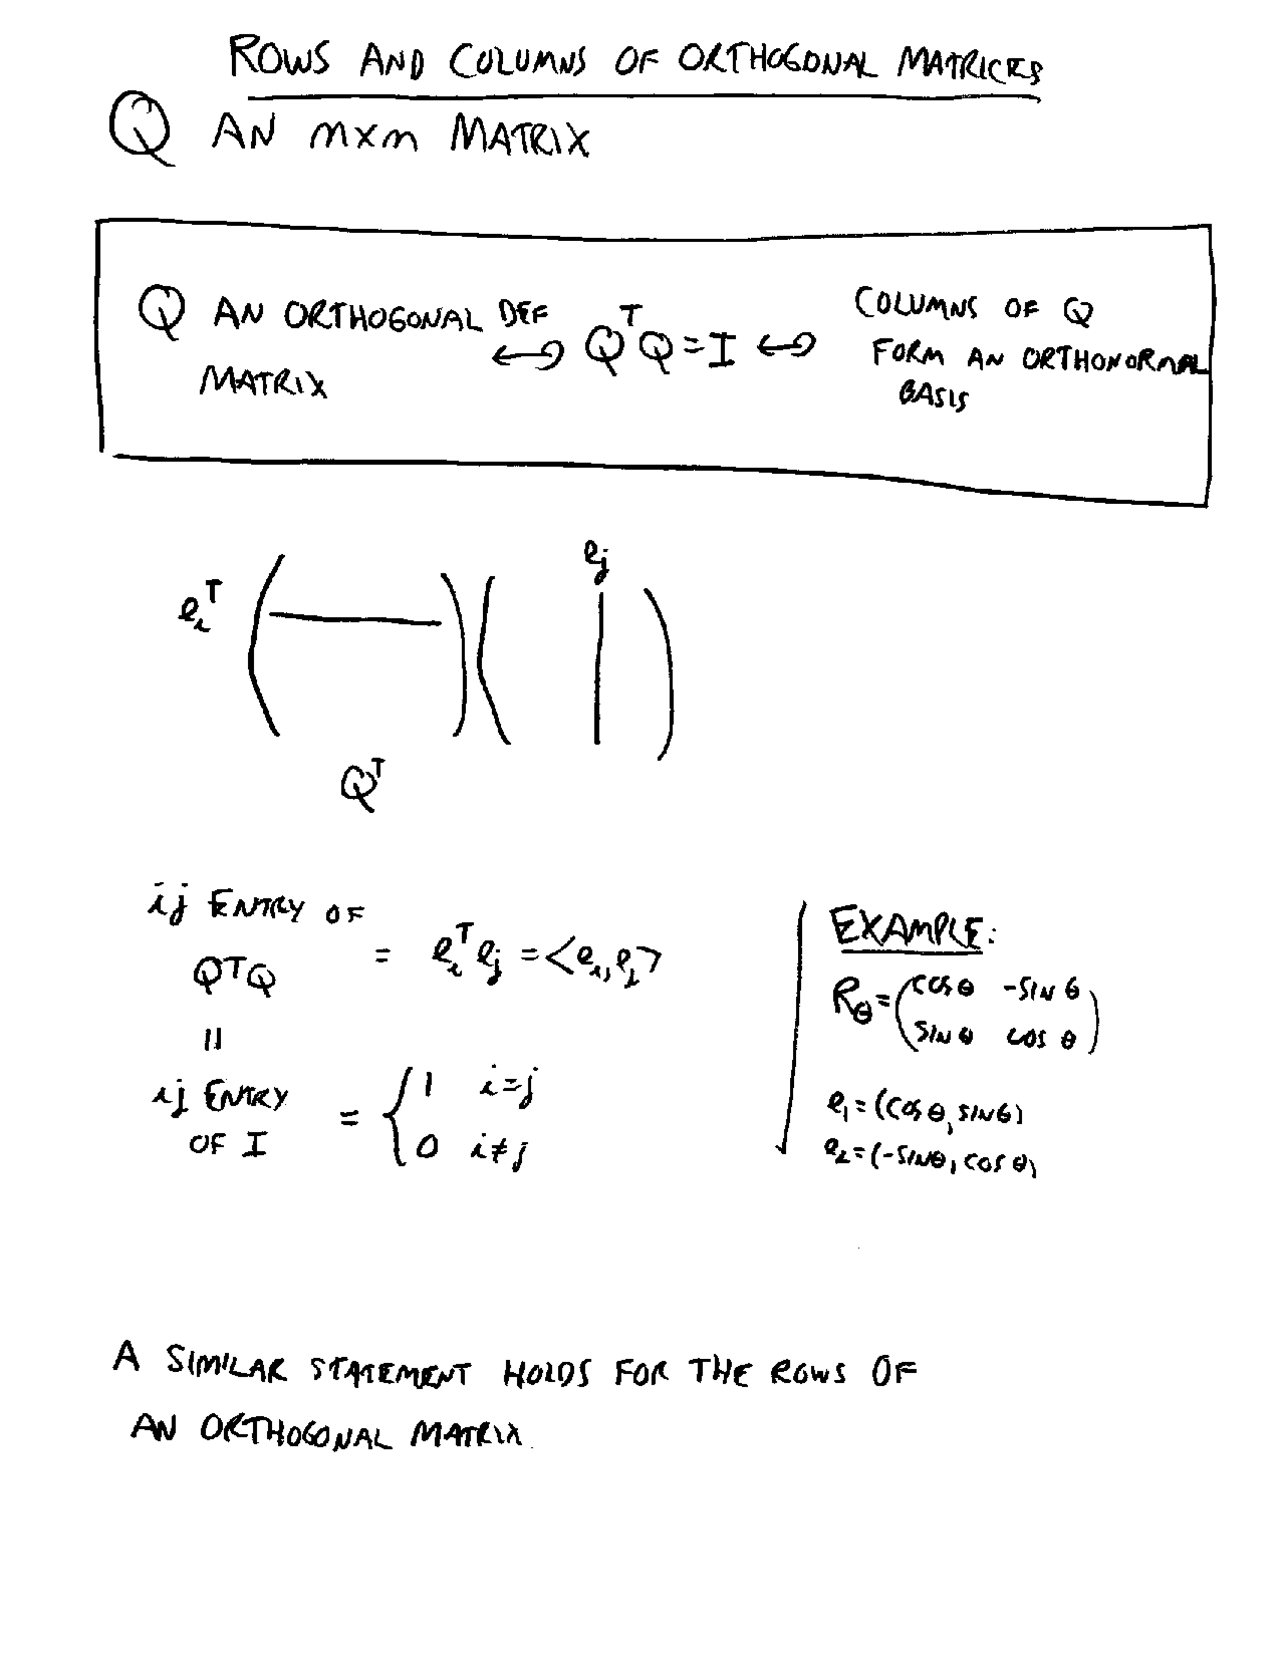 ROWS AND COLUMNS OF ORTHOGONAL MATRICES
Q AN m×m MATRIX
Q AN ORTHOGONAL MATRIX ⟷ DEF QᵀQ = I ⟷ COLUMNS OF Q FORM AN ORTHONORMAL BASIS
eᵢᵀ ( — ) ( | ) eⱼ
Qᵀ
ij ENTRY OF
QᵀQ = eᵢᵀeⱼ = <eᵢ, eⱼ>
=
ij ENTRY
OF I = { 1 i=j
0 i≠j
EXAMPLE:
R_θ = (cos θ -SIN θ
SIN θ cos θ)
e₁ = (cos θ, SIN θ)
e₂ = (-SIN θ, cos θ)
A SIMILAR STATEMENT HOLDS FOR THE ROWS OF
AN ORTHOGONAL MATRIX.